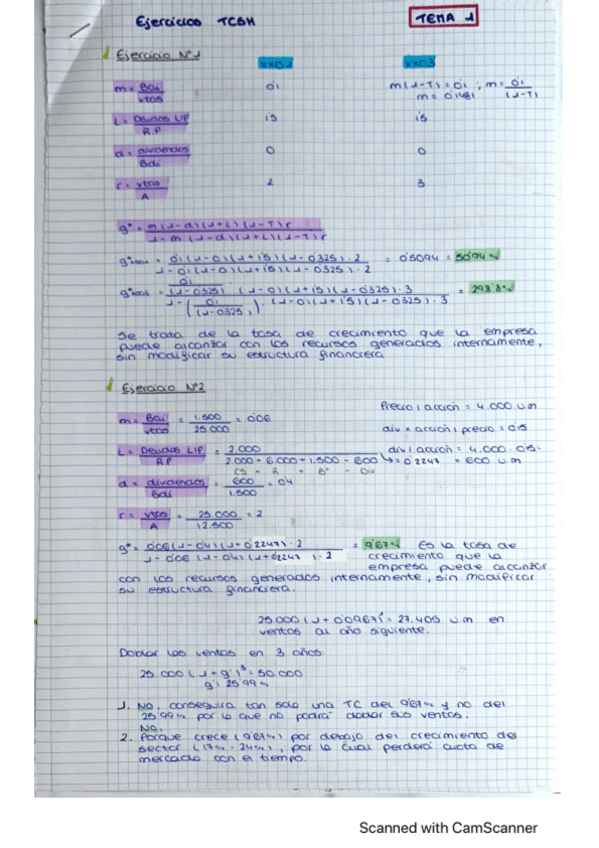 Ejercicios TCSH
TEMA 1
Ejercicio Nº1
xx01
xx03
m = Bai / vtas
0'1
m(1-T) = 0'1 ; m = 0'1 / (1-T)
m = 0'1481
L = Deudas L/P / R.P
1'5
1'5
d = dividendos / Bdi
0
0
r = vtas / A
2
3
g* = m(1-d)(1+L)(1-T)r / 1-m(1-d)(1+L)(1-T)r
= 0'1(1-0)(1+1'5)(1-0'325)·2 / 1-0'1(1-0)(1+1'5)(1-0'325)·2 = 0'5094 = 50'94%
= 0'1 / (1-0'325) (1-0)(1+1'5)(1-0'325)·3 / 1-(0'1 / (1-0'325))·(1-0)(1+1'5)(1-0'325)·3 =
Se trata de la tasa de crecimiento que la empresa
puede alcanzar con los recursos generados internamente,
sin modificar su estructura financiera
Ejercicio Nº2
m = Bai / vtas = 1.500 / 25.000 = 0'06
Precio/acción = 4.000 u.m
div = acción/precio = 0'15
L = Deudas L/P / RP = 2.000 / 2.000+6.000+1.500-600 → = 0'2247
CS + R + Bº - Div
div/acción = 4.000·0'15 = 600 u.m
d = dividendos / Bdi = 600 / 1.500 = 0'4
r = vtas / A = 25.000 / 12.500 = 2
g* = 0'06(1-0'4)(1+0'2247)·2 / 1-0'06(1-0'4)(1+0'2247)·2 = 9'67% Es la tasa de
crecimiento que la
empresa puede alcanzar
con los recursos generados internamente, sin modificar
su estructura financiera.
25.000(1+0'0967)¹ = 27.405 u.m en
ventas al año siguiente.
Doblar las ventas en 3 años
25.000(1+g')³ = 50.000
g' = 25'99%
1. No, conseguirá tan solo una TC del 9'67% y no del
25'99% por lo que no podrá doblar sus ventas.
No,
2. Porque crece (9'67%) por debajo del crecimiento del
sector (17%-24%), por lo cual perderá cuota de
mercado con el tiempo.
Scanned with CamScanner